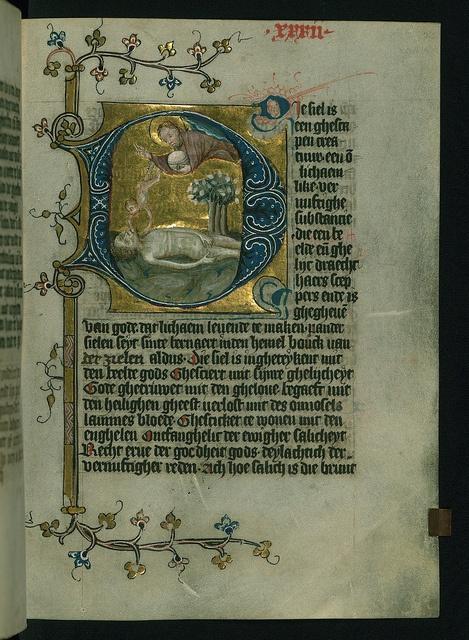 ·xxxii·
Die siel is
een ghesca
pen crea
tuur een ō
lichaem
like ver
nuftighe
substantie
die een be
elde eñ ghe
lijc draecht
haers scep
pers ende is
ghegheue
van gode dat lichaem leuende te maken
sielen seyt sinte bernaert inden
der zielen aldus· Die siel is ingheteykent mit
den beelde gods Ghesciert mit sijnre ghelijcheyt
Gode ghetruwet mit den gheloue begaeft mit
den heilighen gheest verlost mit des onnosels
lammes bloede Ghestricket te wonen mit den
enghelen Ontfanghelic der ewigher salicheyt
Recht erue der gotheit gods deylachtich der
vernuftigher reden· Ach hoe salich is die bruut